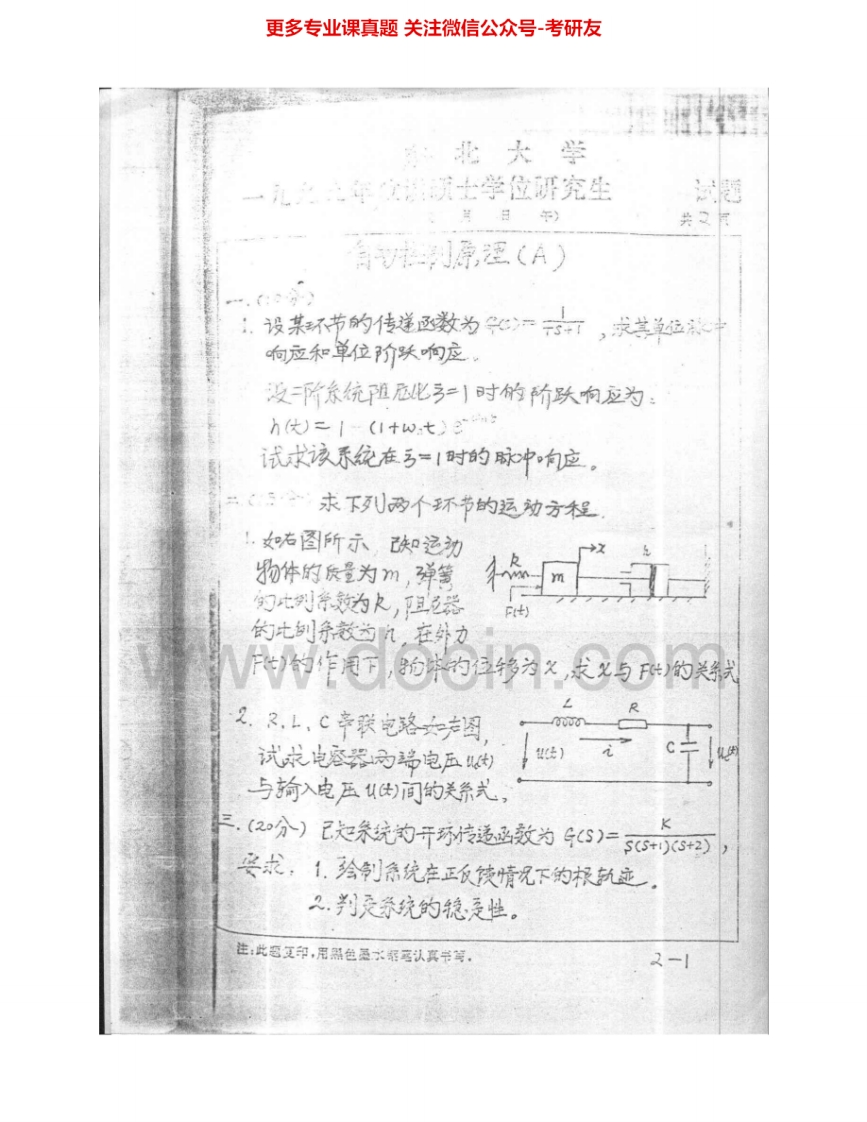 更多专业课真题 关注微信公众号-考研友
北 大 学
硕士学位研究生
试题
月 日 午)
共 2 页
自动控制原理(A)
一.
1. 设某环节的传递函数为 G(s)= 1/(TS+1) ,求其单位脉冲
响应和单位阶跃响应。
设二阶系统阻尼比ξ=1时的阶跃响应为:
h(t)=1-(1+ωnt)e
试求该系统在ξ=1时的脉冲响应。
二. 求下列两个环节的运动方程
1. 如右图所示 已知运动
物体的质量为m,弹簧
的比例系数为k,阻尼器
的比例系数为h,在外力
F(t)的作用下,物体的位移为x,求x与F(t)的关系式
k
m
x
h
F(t)
www.docin.com
2. R.L.C串联电路如右图,
试求电容器两端电压 u(t)
与输入电压u(t)间的关系式。
L
R
u(t)
i
C
三.(20分) 已知系统的开环传递函数为 G(S)= K/(S(S+1)(S+2)) ,
要求: 1. 绘制系统在正反馈情况下的根轨迹.
2. 判定系统的稳定性。
注:此题复印,用黑色墨水钢笔认真书写.
2-1